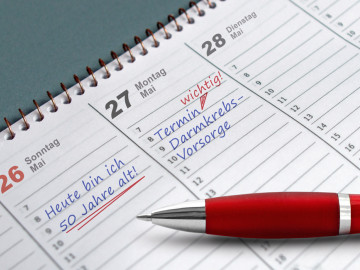 26 Sonntag
Mai
7
8
9
10
11
Heute bin ich
50 Jahre alt!
27 Montag
Mai
7
8
9
10
11
wichtig!
Termin
Darmkrebs-
Vorsorge
28 Dienstag
Mai
7
8
9
10
11
12